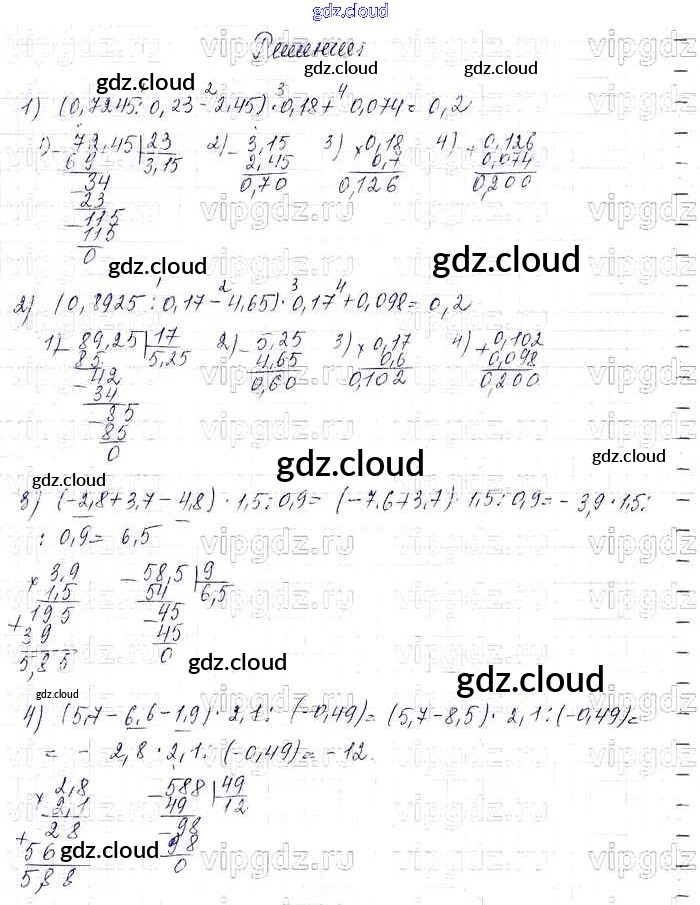 gdz.cloud
Решения
gdz.cloud gdz.cloud gdz.cloud
2 3 4
1) (0,7245 : 0,23 - 2,45) · 0,18 + 0,074 = 0,2
1) - 72,45 | 23 2) - 3,15 3) × 0,18 4) + 0,126
69 3,15 2,45 0,7 0,074
- 34 0,70 0,126 0,200
23
- 115
115
0
gdz.cloud gdz.cloud
1 2 3 4
2) (0,8925 : 0,17 - 4,65) · 0,17 + 0,098 = 0,2
1) - 89,25 | 17 2) - 5,25 3) × 0,17 4) + 0,102
85 5,25 4,65 0,6 0,098
- 42 0,60 0,102 0,200
34
- 85
85
0
gdz.cloud gdz.cloud gdz.cloud
3) (-2,8 + 3,7 - 4,8) · 1,5 : 0,9 = (-7,6 + 3,7) · 1,5 : 0,9 = - 3,9 · 1,5 :
: 0,9 = 6,5
× 3,9 - 58,5 | 9
1,5 54 6,5
195 - 45
+ 39 45
5,85 0
gdz.cloud gdz.cloud
gdz.cloud
4) (5,7 - 6,6 - 1,9) · 2,1 : (-0,49) = (5,7 - 8,5) · 2,1 : (-0,49) =
= - 2,8 · 2,1 : (-0,49) = - 12.
× 2,8 - 588 | 49
2,1 49 12
28 - 98
+ 56 98
5,88 0
gdz.cloud
vipgdz.ru